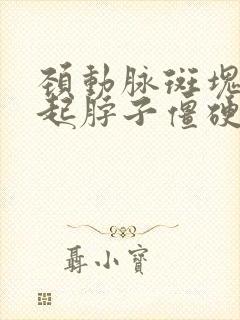 頚動脉斑塊
起脖子僵硬
聶小寶